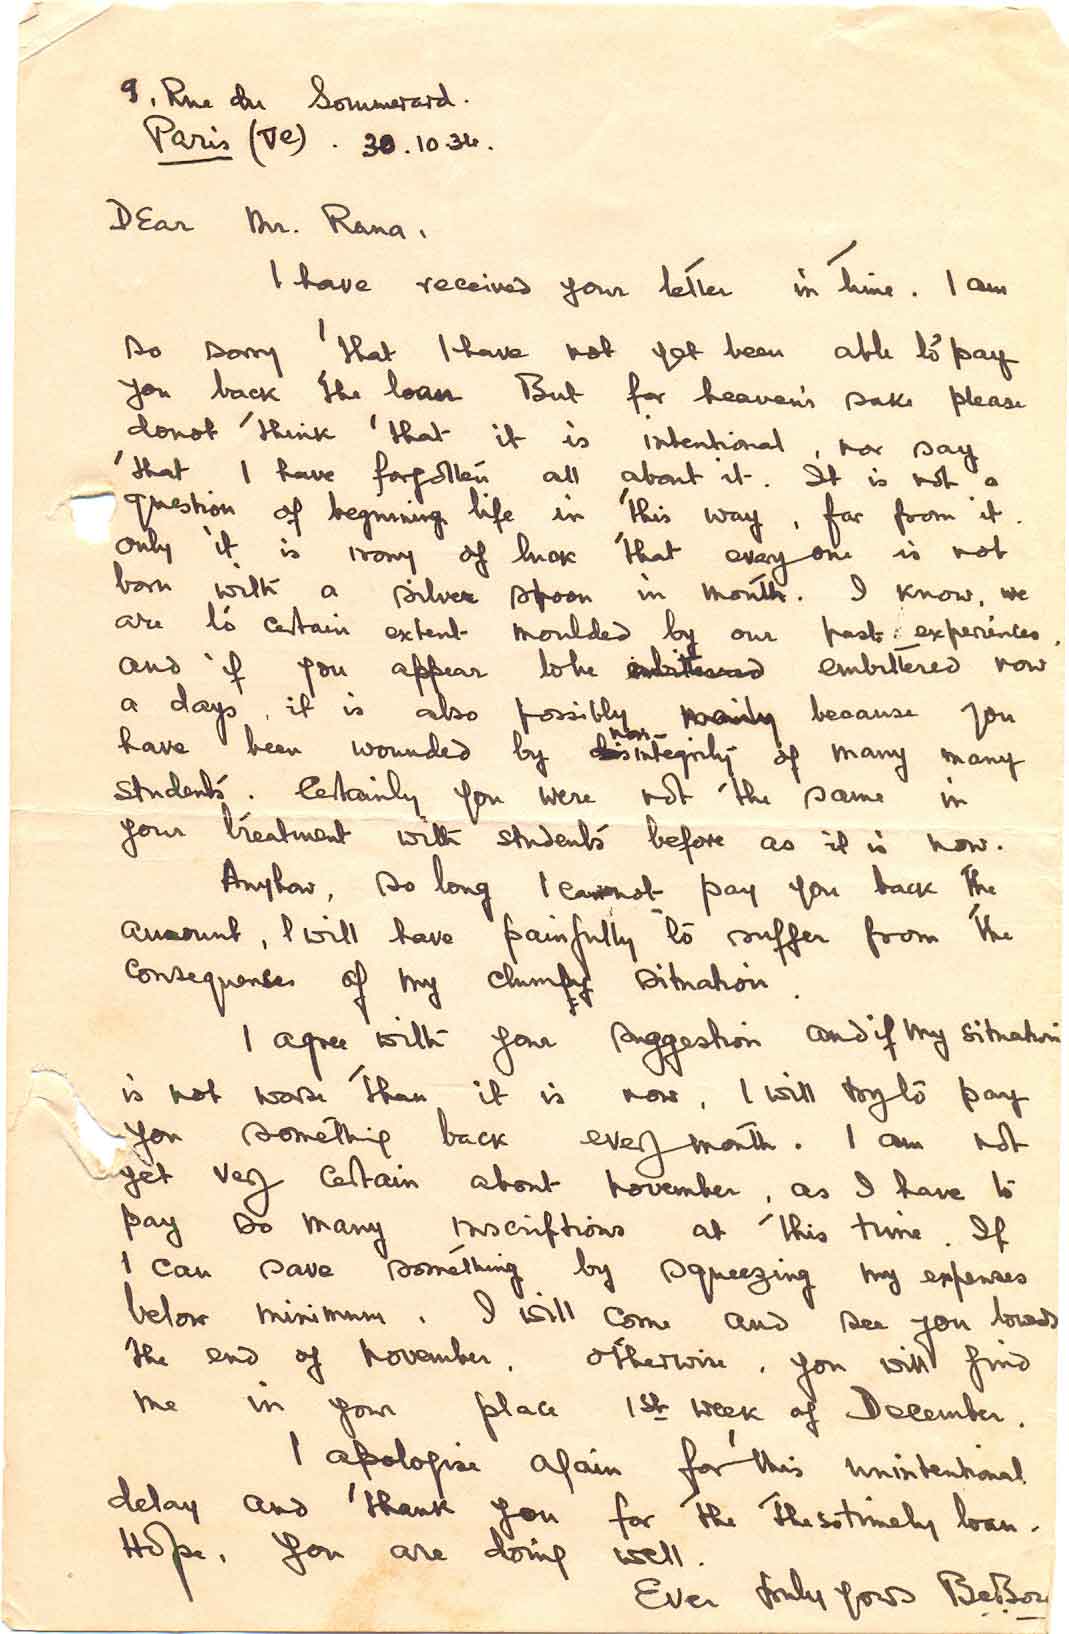 9, Rue du Sommerard.
Paris (Ve). 30.10.34.
DEar Mr. Rana,
I have received your letter in time. I am
so sorry that I have not yet been able to pay
you back the loan But for heaven's sake please
donot think that it is intentional, nor say
that I have forgotten all about it. It is not a
question of beginning life in this way, far from it.
only it is irony of luck that every one is not
born with a silver spoon in mouth. I know, we
are to certain extent moulded by our past experiences.
and if you appear to be embittered embittered now
a days, it is also possibly mainly because you
have been wounded by non-integrity of many many
students. Certainly you were not the same in
your treatment with students before as it is now.
Anyhow, so long I cannot pay you back the
amount, I will have painfully to suffer from the
consequences of my clumsy situation.
I agree with your suggestion and if my situation
is not worse than it is now, I will try to pay
you something back every month. I am not
yet very certain about november, as I have to
pay so many inscriptions at this time. If
I can save something by squeezing my expenses
below minimum, I will come and see you towards
the end of november. Otherwise, you will find
me in your place 1st week of December.
I apologise again for this unintentional
delay and thank you for the loan.
Hope, you are doing well.
Ever truly yours